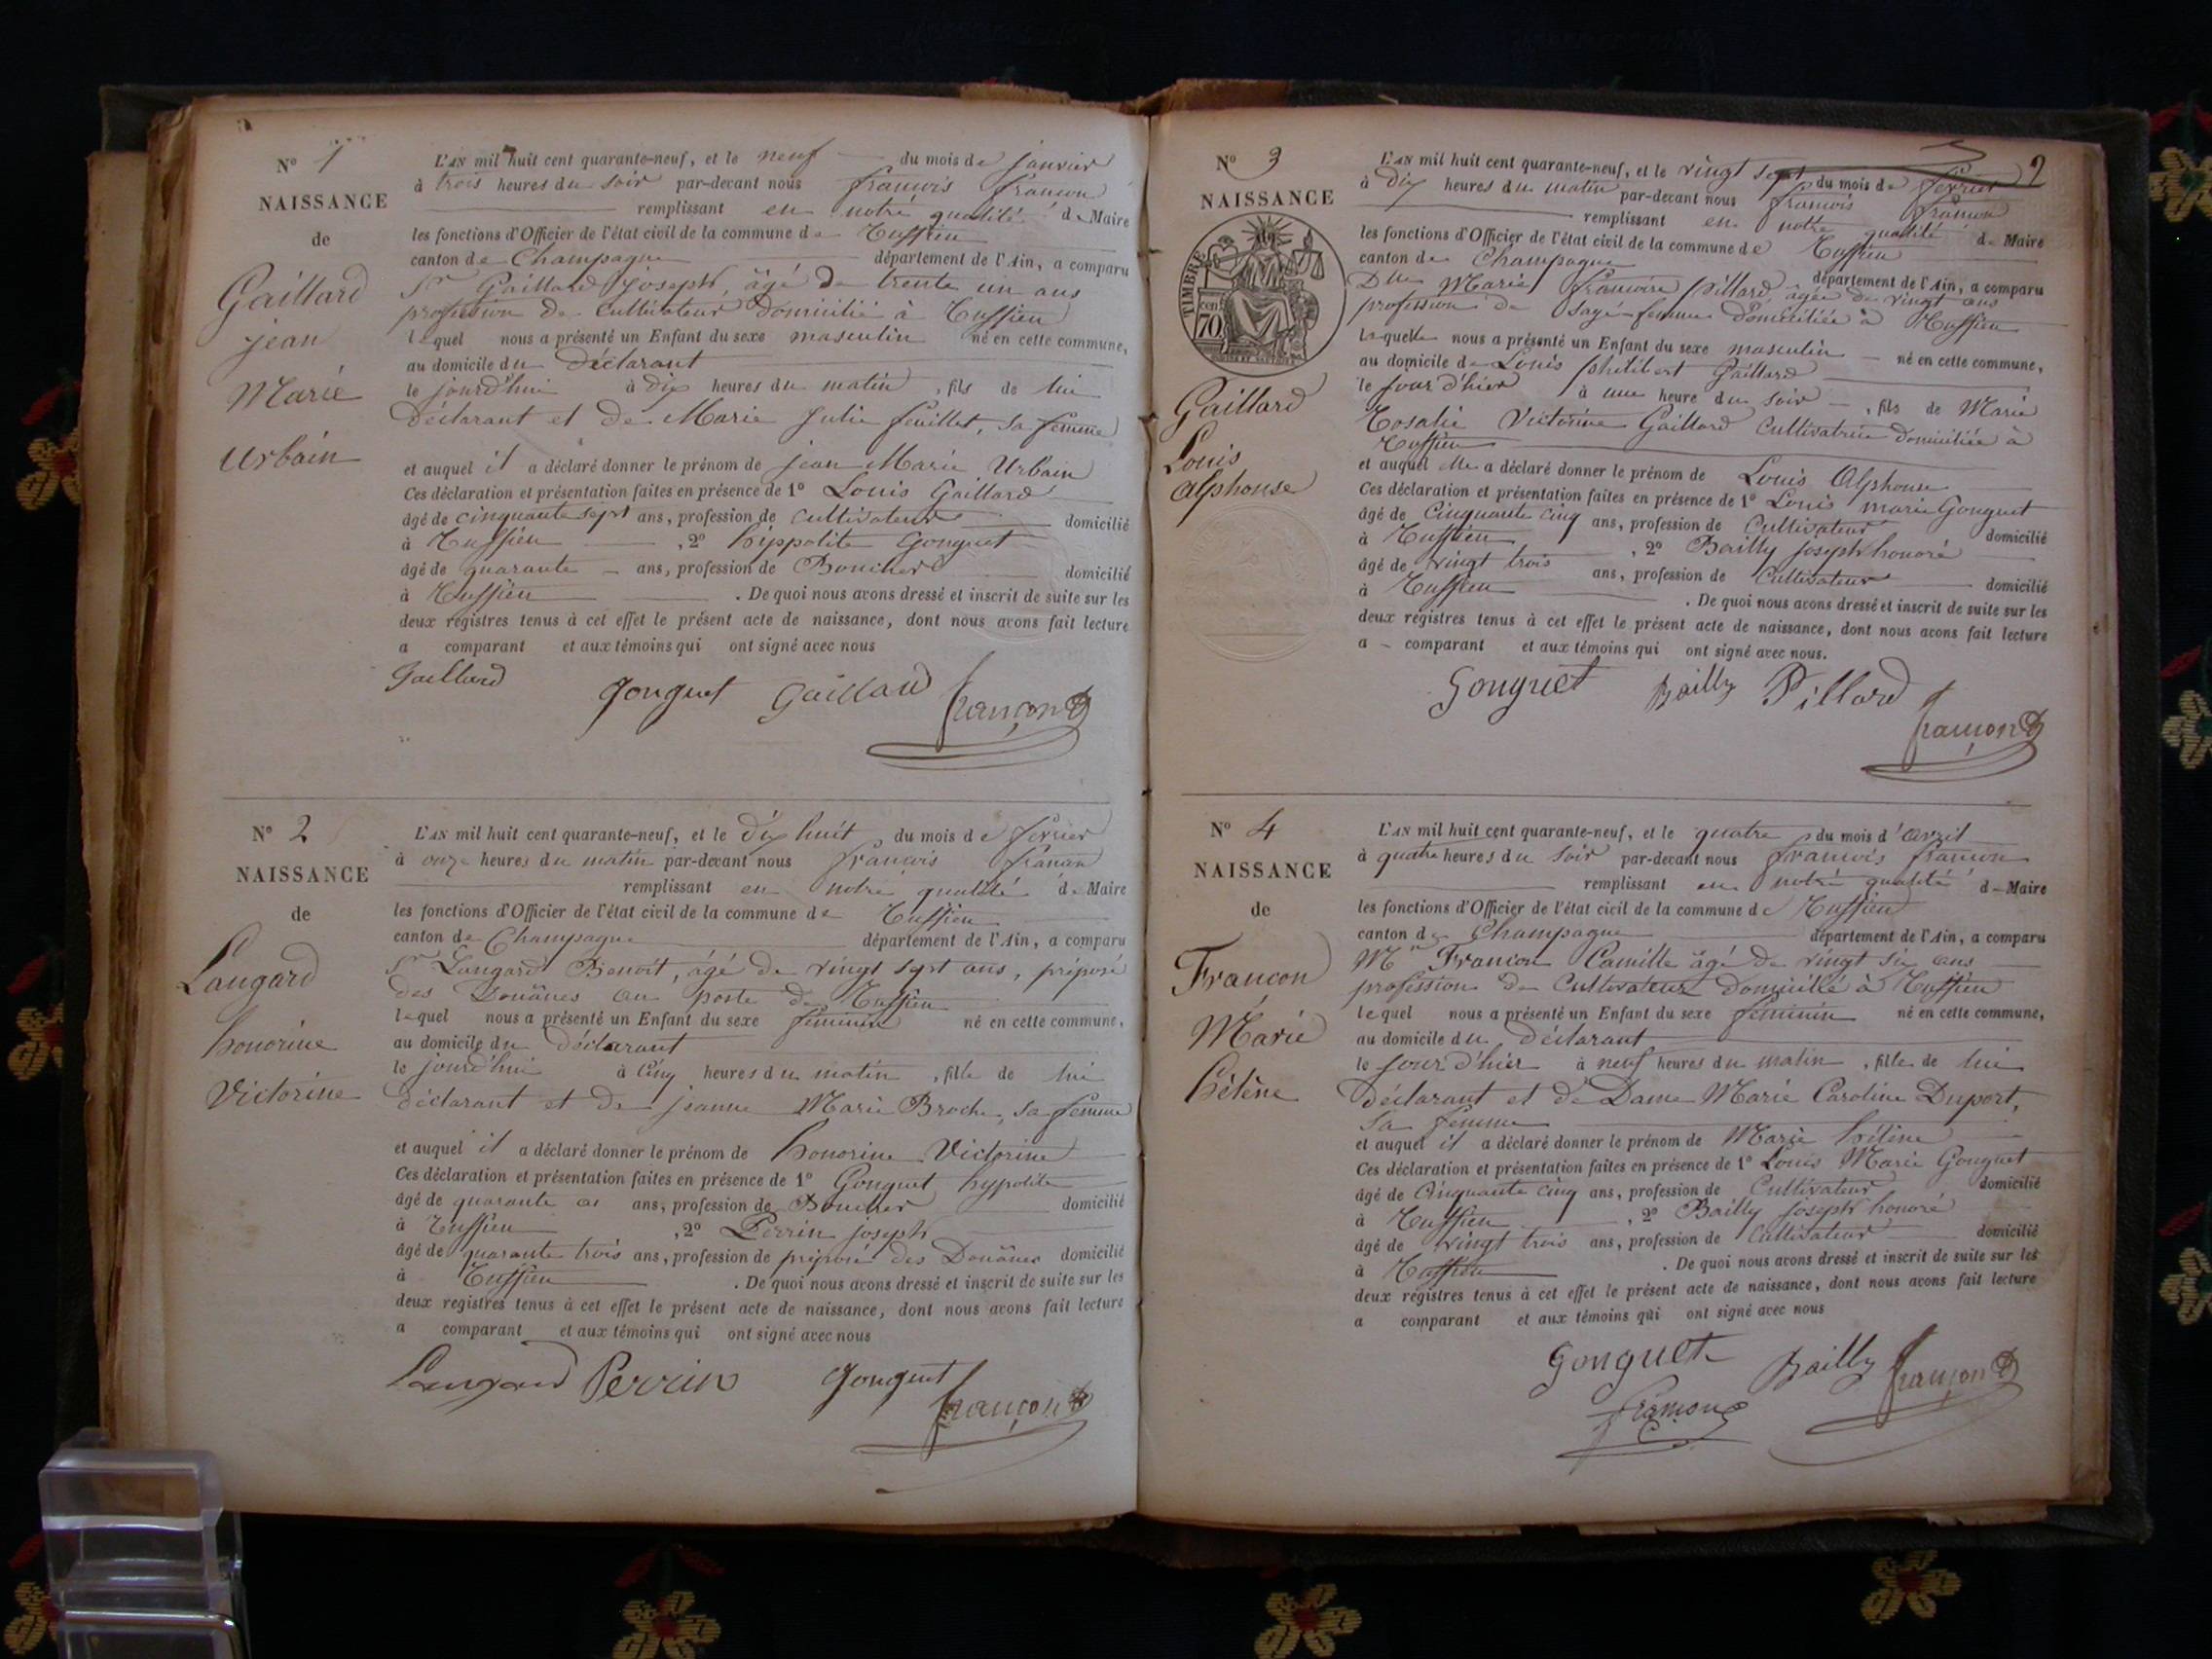 N° 1
NAISSANCE
de
Gaillard
jean
Marie
Urbain
L'AN mil huit cent quarante-neuf, et le neuf du mois de janvier
à trois heures du soir par-devant nous françois françon
remplissant en notre qualité de Maire
les fonctions d'Officier de l'état civil de la commune de Ruffieu
canton de Champagne département de l'Ain, a comparu
Sr Gaillard joseph, âgé de trente un ans
profession de Cultivateur domicilié à Ruffieu
lequel nous a présenté un Enfant du sexe masculin né en cette commune,
au domicile du déclarant
le jourd'hui à dix heures du matin, fils de lui
déclarant et de Marie Julie feuillet, sa femme
et auquel il a déclaré donner le prénom de jean Marie Urbain
Ces déclaration et présentation faites en présence de 1° Louis Gaillard
âgé de cinquante sept ans, profession de Cultivateur domicilié
à Ruffieu, 2° hyppolite Gonguet
âgé de quarante ans, profession de Boucher domicilié
à Ruffieu. De quoi nous avons dressé et inscrit de suite sur les
deux registres tenus à cet effet le présent acte de naissance, dont nous avons fait lecture
a comparant et aux témoins qui ont signé avec nous
Gaillard Gonguet Gaillard françon
N° 2
NAISSANCE
de
Langard
honorine
Victorine
L'AN mil huit cent quarante-neuf, et le dix huit du mois de février
à onze heures du matin par-devant nous françois
remplissant en notre qualité de Maire
les fonctions d'Officier de l'état civil de la commune de Ruffieu
canton de Champagne département de l'Ain, a comparu
Sr Langard Benoit, âgé de vingt sept ans, préposé
des Douânes au poste de Ruffieu
lequel nous a présenté un Enfant du sexe féminin né en cette commune,
au domicile du déclarant
le jourd'hui à Cinq heures du matin, fille de lui
déclarant et de jeanne Marie Broche, sa femme
et auquel il a déclaré donner le prénom de honorine Victorine
Ces déclaration et présentation faites en présence de 1° Gonguet hyppolite
âgé de quarante ans, profession de Boucher domicilié
à Ruffieu, 2° Perrin joseph
âgé de quarante trois ans, profession de préposé des Douânes domicilié
à Ruffieu. De quoi nous avons dressé et inscrit de suite sur les
deux registres tenus à cet effet le présent acte de naissance, dont nous avons fait lecture
a comparant et aux témoins qui ont signé avec nous
Langard Perrin Gonguet françon
2
N° 3
NAISSANCE
de
TIMBRE
70 cen
Gaillard
Louis
alphonse
L'AN mil huit cent quarante-neuf, et le vingt sept du mois de février
à dix heures du matin par-devant nous françois françon
remplissant en notre qualité de Maire
les fonctions d'Officier de l'état civil de la commune de Ruffieu
canton de Champagne département de l'Ain, a comparu
Dlle Marie françoise Pillard âgée de vingt ans
profession de Sage-femme domiciliée à Ruffieu
laquelle nous a présenté un Enfant du sexe masculin né en cette commune,
au domicile de Louis philibert Gaillard
le jour d'hier à une heure du soir, fils de Marie
Rosalie Victorine Gaillard Cultivatrice domiciliée à
Ruffieu
et auquel elle a déclaré donner le prénom de Louis Alphonse
Ces déclaration et présentation faites en présence de 1° Louis marie Gonguet
âgé de Cinquante cinq ans, profession de Cultivateur domicilié
à Ruffieu, 2° Bailly joseph honoré
âgé de vingt trois ans, profession de Cultivateur domicilié
à Ruffieu. De quoi nous avons dressé et inscrit de suite sur les
deux registres tenus à cet effet le présent acte de naissance, dont nous avons fait lecture
a comparant et aux témoins qui ont signé avec nous.
Gonguet Bailly Pillard françon
N° 4
NAISSANCE
de
Françon
Marie
hélène
L'AN mil huit cent quarante-neuf, et le quatre du mois d'avril
à quatre heures du soir par-devant nous françois françon
remplissant en notre qualité de Maire
les fonctions d'Officier de l'état civil de la commune de Ruffieu
canton de Champagne département de l'Ain, a comparu
Mr Françon Camille âgé de vingt six ans
profession de Cultivateur domicilié à Ruffieu
lequel nous a présenté un Enfant du sexe féminin né en cette commune,
au domicile du déclarant
le jour d'hier à neuf heures du matin, fille de lui
déclarant et de Dame Marie Caroline Duport,
sa femme
et auquel il a déclaré donner le prénom de Marie hélène
Ces déclaration et présentation faites en présence de 1° Louis Marie Gonguet
âgé de Cinquante cinq ans, profession de Cultivateur domicilié
à Ruffieu, 2° Bailly joseph honoré
âgé de vingt trois ans, profession de Cultivateur domicilié
à Ruffieu. De quoi nous avons dressé et inscrit de suite sur les
deux registres tenus à cet effet le présent acte de naissance, dont nous avons fait lecture
a comparant et aux témoins qui ont signé avec nous
Gonguet Bailly françon
françon